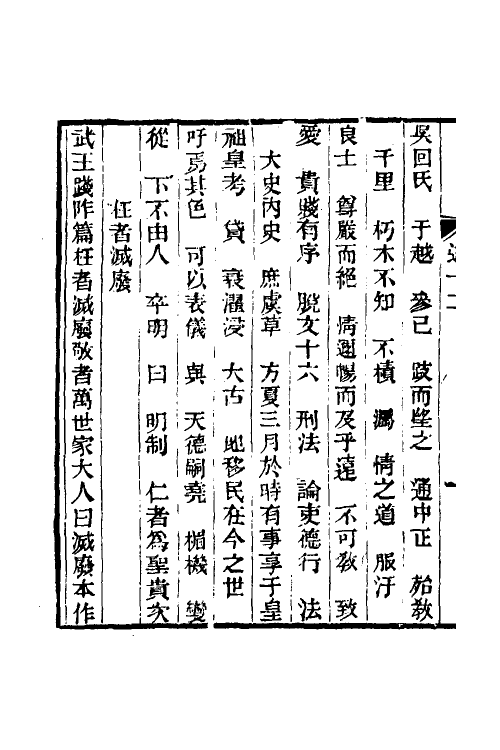 吳回氏　于越　參己　跂而望之　通中正　殆教
千里　朽木不知　不積　漏　情之道　服汙
良士　尊嚴而絕　情邇暢而及乎遠　不可教　致
愛　貴賤有序　脫文十六　刑法　論吏德行　法
大史內史　庶虞草　方夏三月於時有事享于皇
祖皇考　貸　衰濯浸　大古　地移民在今之世
吁焉其色　可以表儀　與　天德嗣堯　楣機　變
從　下不由人　卒明　曰　明制　仁者為聖貴次
枉者滅廢
武王踐阼篇枉者滅廢敬者萬世家大人曰滅廢本作